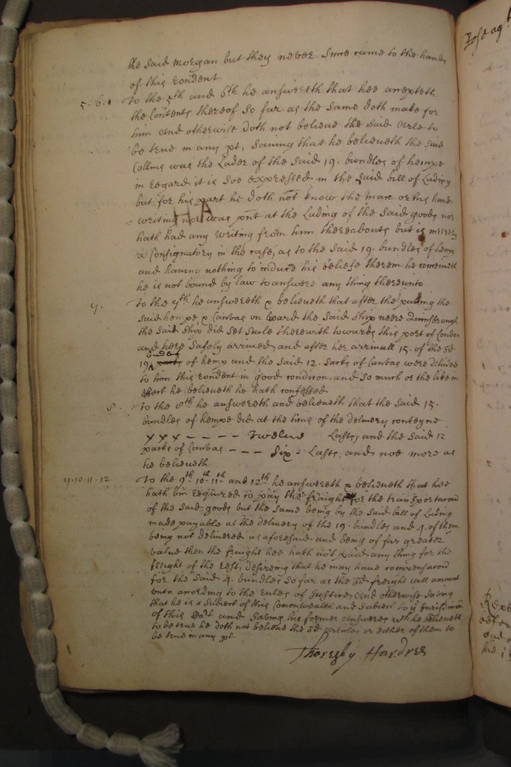 the said Morgan but they never since came to the hands
of this rendent
5. 6. To the 5th and 6th he answereth that hee accepteth
the Contents thereof so far as the same doth make for
him and otherwise doth not beleive the said Arles to
be true in any pt, Saving that he beleiveth the said
Collins was the Lader of the said 19. bundles of hempe
in regard it is soe expressed in the said bill of Lading
but for his part he doth not know the man or his hand
writing nor was pnt at the Lading of the said goods nor
hath had any writing from him thereabouts but is
Consignatary in the case, as to the said 19. bundles of hempe
and having nothing to induce his beleife therein he conceiveth
he is not bound by law to answere any thing thereunto
7. To the 7th he answereth & beleiveth that after the putting the
said hempe & Canvas on board the said Ship neere
the said Ship did set Saile therewith towards this port of London
and here Safely arrived, and after her arrivall 15. of the sd
bundles
19 of hemp and the said 12. packs of Canvas were delivered
to him this rendent in good condicion, and so much or the like in
effect he beleiveth he hath confessed
8. To the 8th he answereth and beleiveth that the said 15.
bundles of hempe did at the time of the delivery conteyne
XXX - - - - Twelve Lasts, and the said 12
packs of Canvas - - - Six - Lasts, and noe more as
he beleiveth
9. 10. 11. 12 To the 9th 10th 11th and 12th he answereth & beleiveth that hee
hath bin required to pay the fraight for the transportacion
of the said goods but the same being by the said bill of Lading
made payable at the delivery of the 19. bundles and 4. of them
being not delivered as aforesaid and being of far greater
value then the fraight hee hath not paid any thing for the
fraight of the rest, desireing that he may have recompensacion
for the said 4. bundles so far as the sd fraight will amount
unto according to the rules of Justice, and otherwise saving
that he is a Subiect of this Comonwealth and Subiect to ye Jurisdiccion
of this Cort and Saving his former answeres wch he beleiveth
to be true he doth not beleive the sd posicions or either of them to
be true in any pt.
Thoresby Hardres
HA